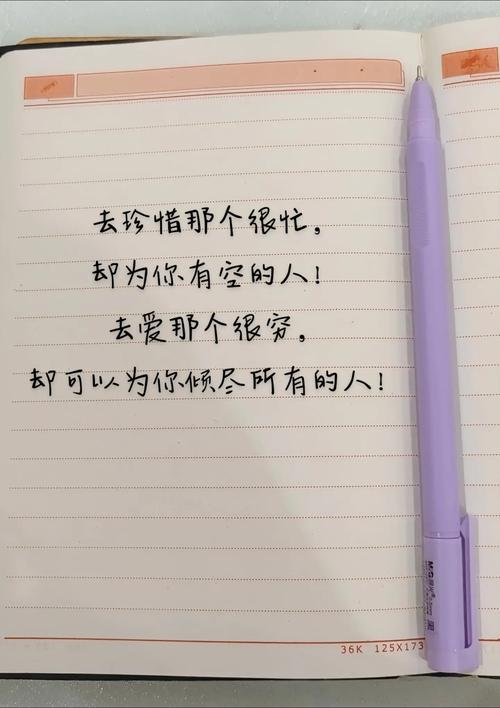 去珍惜那个很忙，
却为你有空的人！
去爱那个很穷，
却可以为你倾尽所有的人！
36K 125X173
M&G 晨光